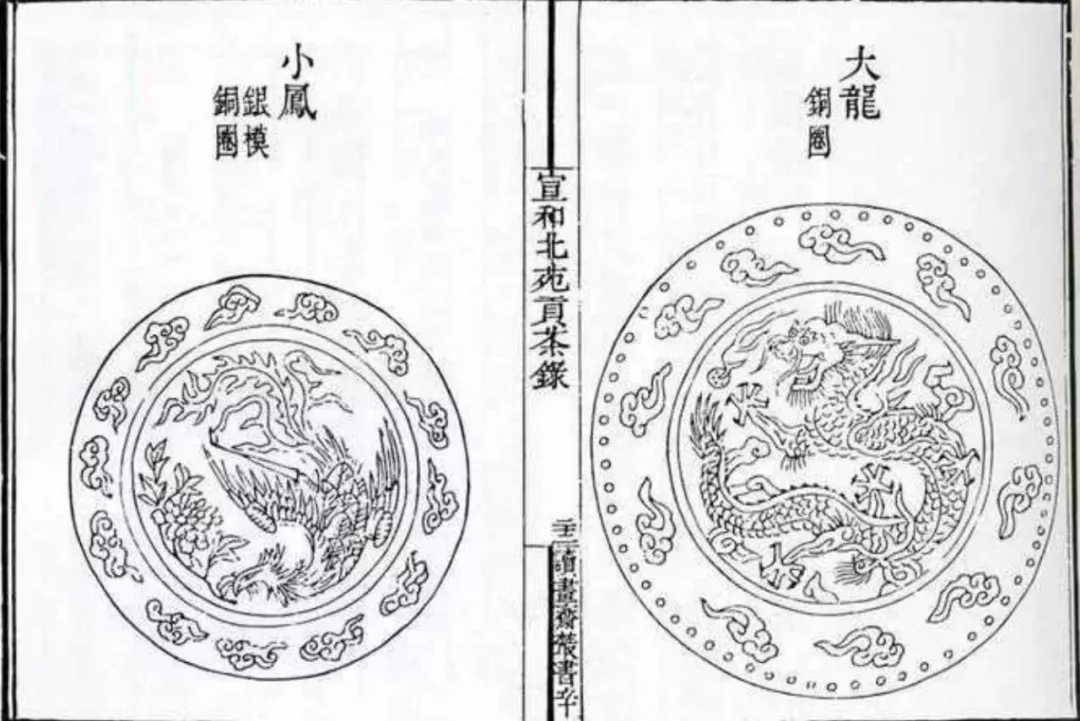 大龍
銅圈
宣和北苑貢茶錄
讀畫齋叢書辛
小鳳
銀模
銅圈